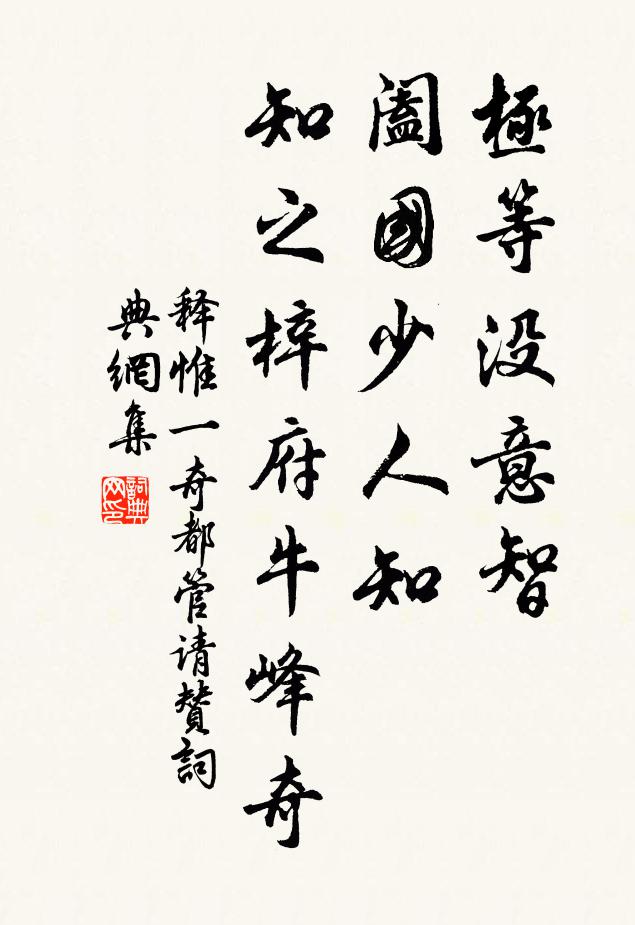 極等没意智
闔國少人知
知之梓府牛峰奇
释惟一奇都管请贊詞
典網集
詞典网印